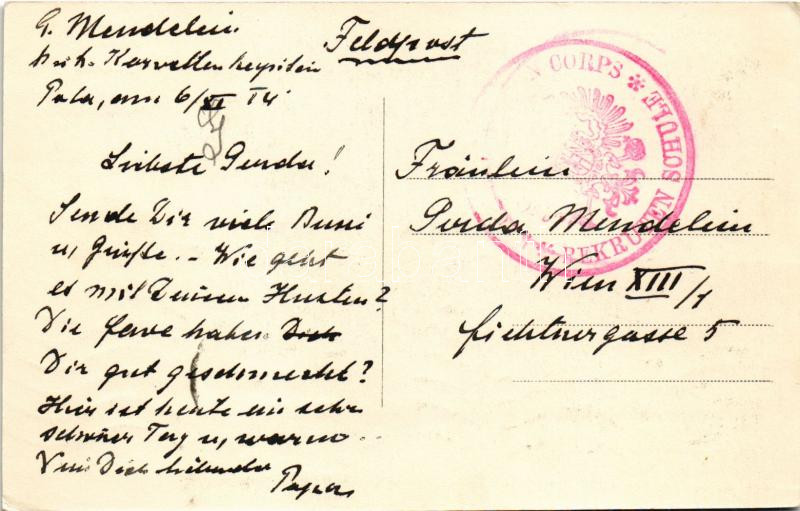 G. Mendelein
k.u.k. Korvettenkapitän
Pola, am 6/XI 14
Feldpost
Liebste Gerda!
Sende Dir viele Bussi
u. Grüße. - Wie geht
es mit Deinem Husten?
Die fave haben Dich
Dir gut geschmeckt?
Hier ist heute ein sehr
schöner Tag u. warm.
Dich liebender
Papa
Fräulein
Gerda Mendelein
Wien XIII/1
Fichtnergasse 5
CORPS * REKRUTEN SCHULE *